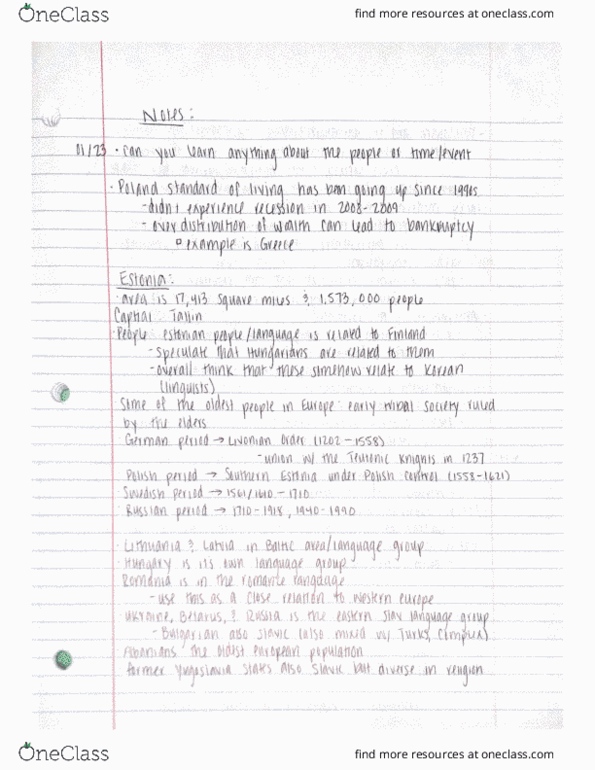 OneClass
find more resources at oneclass.com
Notes:
01/23 · can you learn anything about the people or time/event
· Poland standard of living has been going up since 1990s
- didn't experience recession in 2008-2009
- over distribution of wealth can lead to bankruptcy
▫ example is Greece
Estonia:
· area is 17,413 square miles & 1,573,000 people
Capital: Tallin
· People estonian people/language is related to Finland
- speculate that Hungarians are related to them
- overall think that these somehow relate to Korean
(linguists)
Some of the oldest people in Europe: early tribal society ruled
by the elders
German period → Livonian Order (1202-1558)
- union w/ the Teutonic Knights in 1237
Polish period → Southern Estonia under Polish control (1558-1621)
Swedish period → 1561/1610-1710
Russian period → 1710-1918, 1940-1990
· Lithuania & Latvia in Baltic area/language group
· Hungary is its own language group
Romania is in the romance language
- use this as a close relation to western europe
Ukraine, Belarus, & Russia is the eastern slav language group
- Bulgarian also slavic (also mixed w/ Turks,
Albanians the oldest european population
former Yugoslavia states also slavic but diverse in religion
OneClass
find more resources at oneclass.com